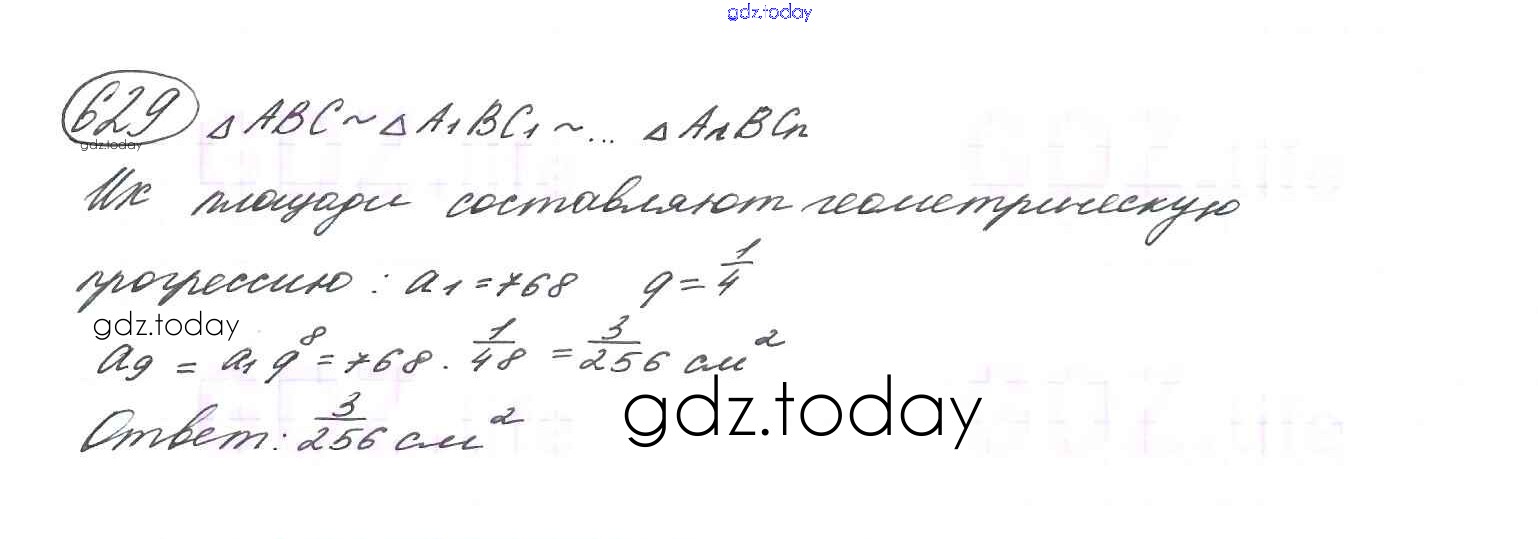 gdz.today
629 △ABC ~ △A₁BC₁ ~ ... △AₙBCₙ
gdz.today
Их площади составляют геометрическую
прогрессию: a₁ = 768 q = 1/4
gdz.today
a₉ = a₁q⁸ = 768 · 1/48 = 3/256 см²
Ответ: 3/256 см²
gdz.today